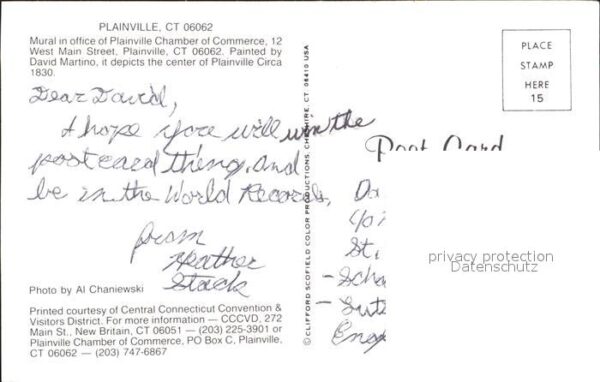 PLAINVILLE, CT 06062
Mural in office of Plainville Chamber of Commerce, 12
West Main Street, Plainville, CT 06062. Painted by
David Martino, it depicts the center of Plainville Circa
1830.
Dear David,
I hope you will win the
postcard thing, and
be in the World Records,
from
Heather
Stack
Photo by Al Chaniewski
Printed courtesy of Central Connecticut Convention &
Visitors District. For more information — CCCVD, 272
Main St., New Britain, CT 06051 — (203) 225-3901 or
Plainville Chamber of Commerce, PO Box C, Plainville,
CT 06062 — (203) 747-6867
© CLIFFORD SCOFIELD COLOR PRODUCTIONS, CHESHIRE, CT. 06410 USA
PLACE
STAMP
HERE
15
Post Card
privacy protection
Datenschutz